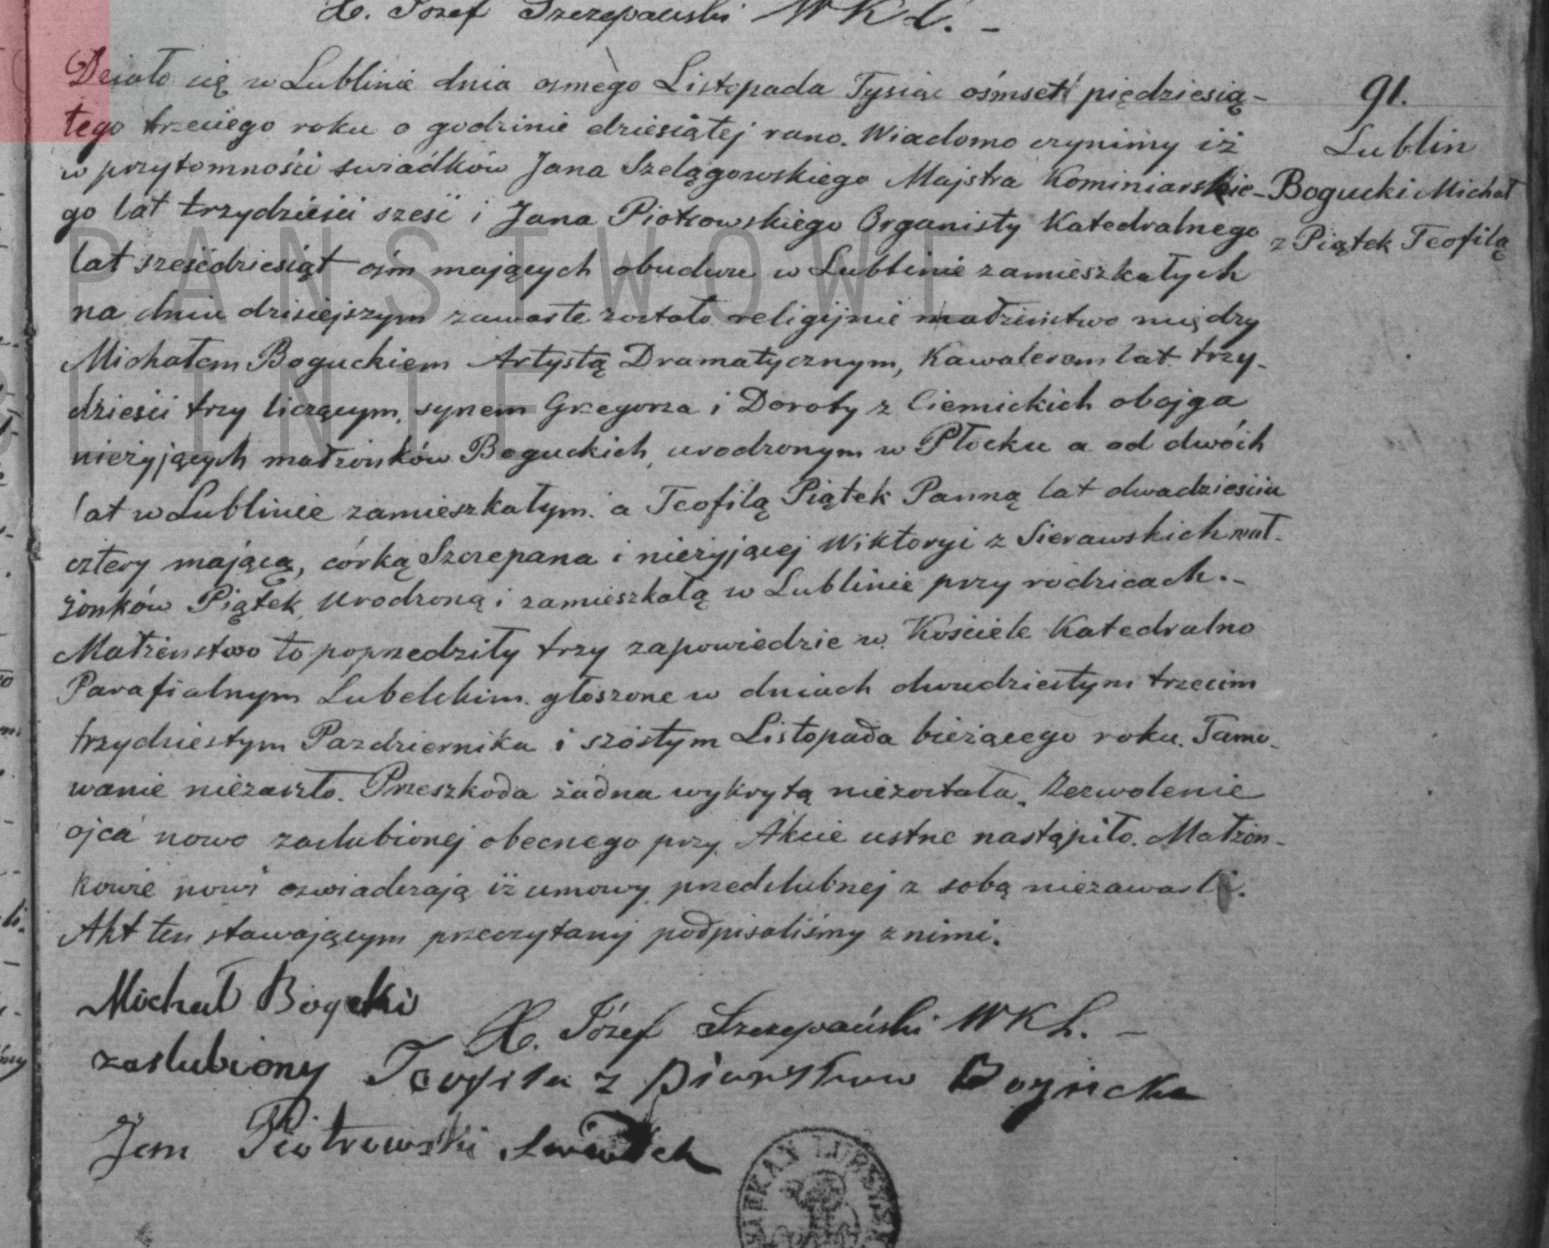 X. Józef Szczepański WKL. –
Działo się w Lublinie dnia osmego Listopada Tysiąc ośmset piędziesią-
tego trzeciego roku o godzinie dziesiątej rano. Wiadomo czynimy iż
w przytomności swiadków Jana Szelągowskiego Majstra Kominiarskie-
go lat trzydzieści sześć i Jana Piotrowskiego Organisty Katedralnego
lat sześćdziesiąt osm mających obudwu w Lublinie zamieszkałych
na dniu dzisiejszym zawarte zostało religijnie małżeństwo między
Michałem Boguckiem Artystą Dramatycznym, Kawalerem lat trzy-
dzieści trzy liczącym, synem Grzegorza i Doroty z Ciemickich obojga
nieżyjących małżonków Boguckich, urodzonym w Płocku a od dwóch
lat w Lublinie zamieszkałym. a Teofilą Piątek Panną lat dwadzieścia
cztery mającą, córką Szczepana i nieżyjącej Wiktoryi z Sierawskich mał-
żonków Piątek, urodzoną i zamieszkałą w Lublinie przy rodzicach. –
Małżeństwo to poprzedziły trzy zapowiedzie w Kościele Katedralno
Parafialnym Lubelskim głoszone w dniach dwudziestym trzecim
trzydziestym Pazdziernika i szóstym Listopada bieżącego roku. Tamo-
wanie niezaszło. Przeszkoda żadna wykrytą niezostała. Zezwolenie
ojca nowo zaslubionej obecnego przy Akcie ustne nastąpiło. Małżon-
kowie nowi oswiadczają iż umowy przedslubnej z sobą niezawarli.
Akt ten stawającym przeczytany podpisaliśmy z nimi.
91.
Lublin
Bogucki Michał
z Piątek Teofilą
Michał Bogucki
X. Józef Szczepański WKL. –
zaslubiony Teofila z Piontkow Bogucka
Jan Piotrowski Swiadek
PAŃSTWOWE
LUBLINIE